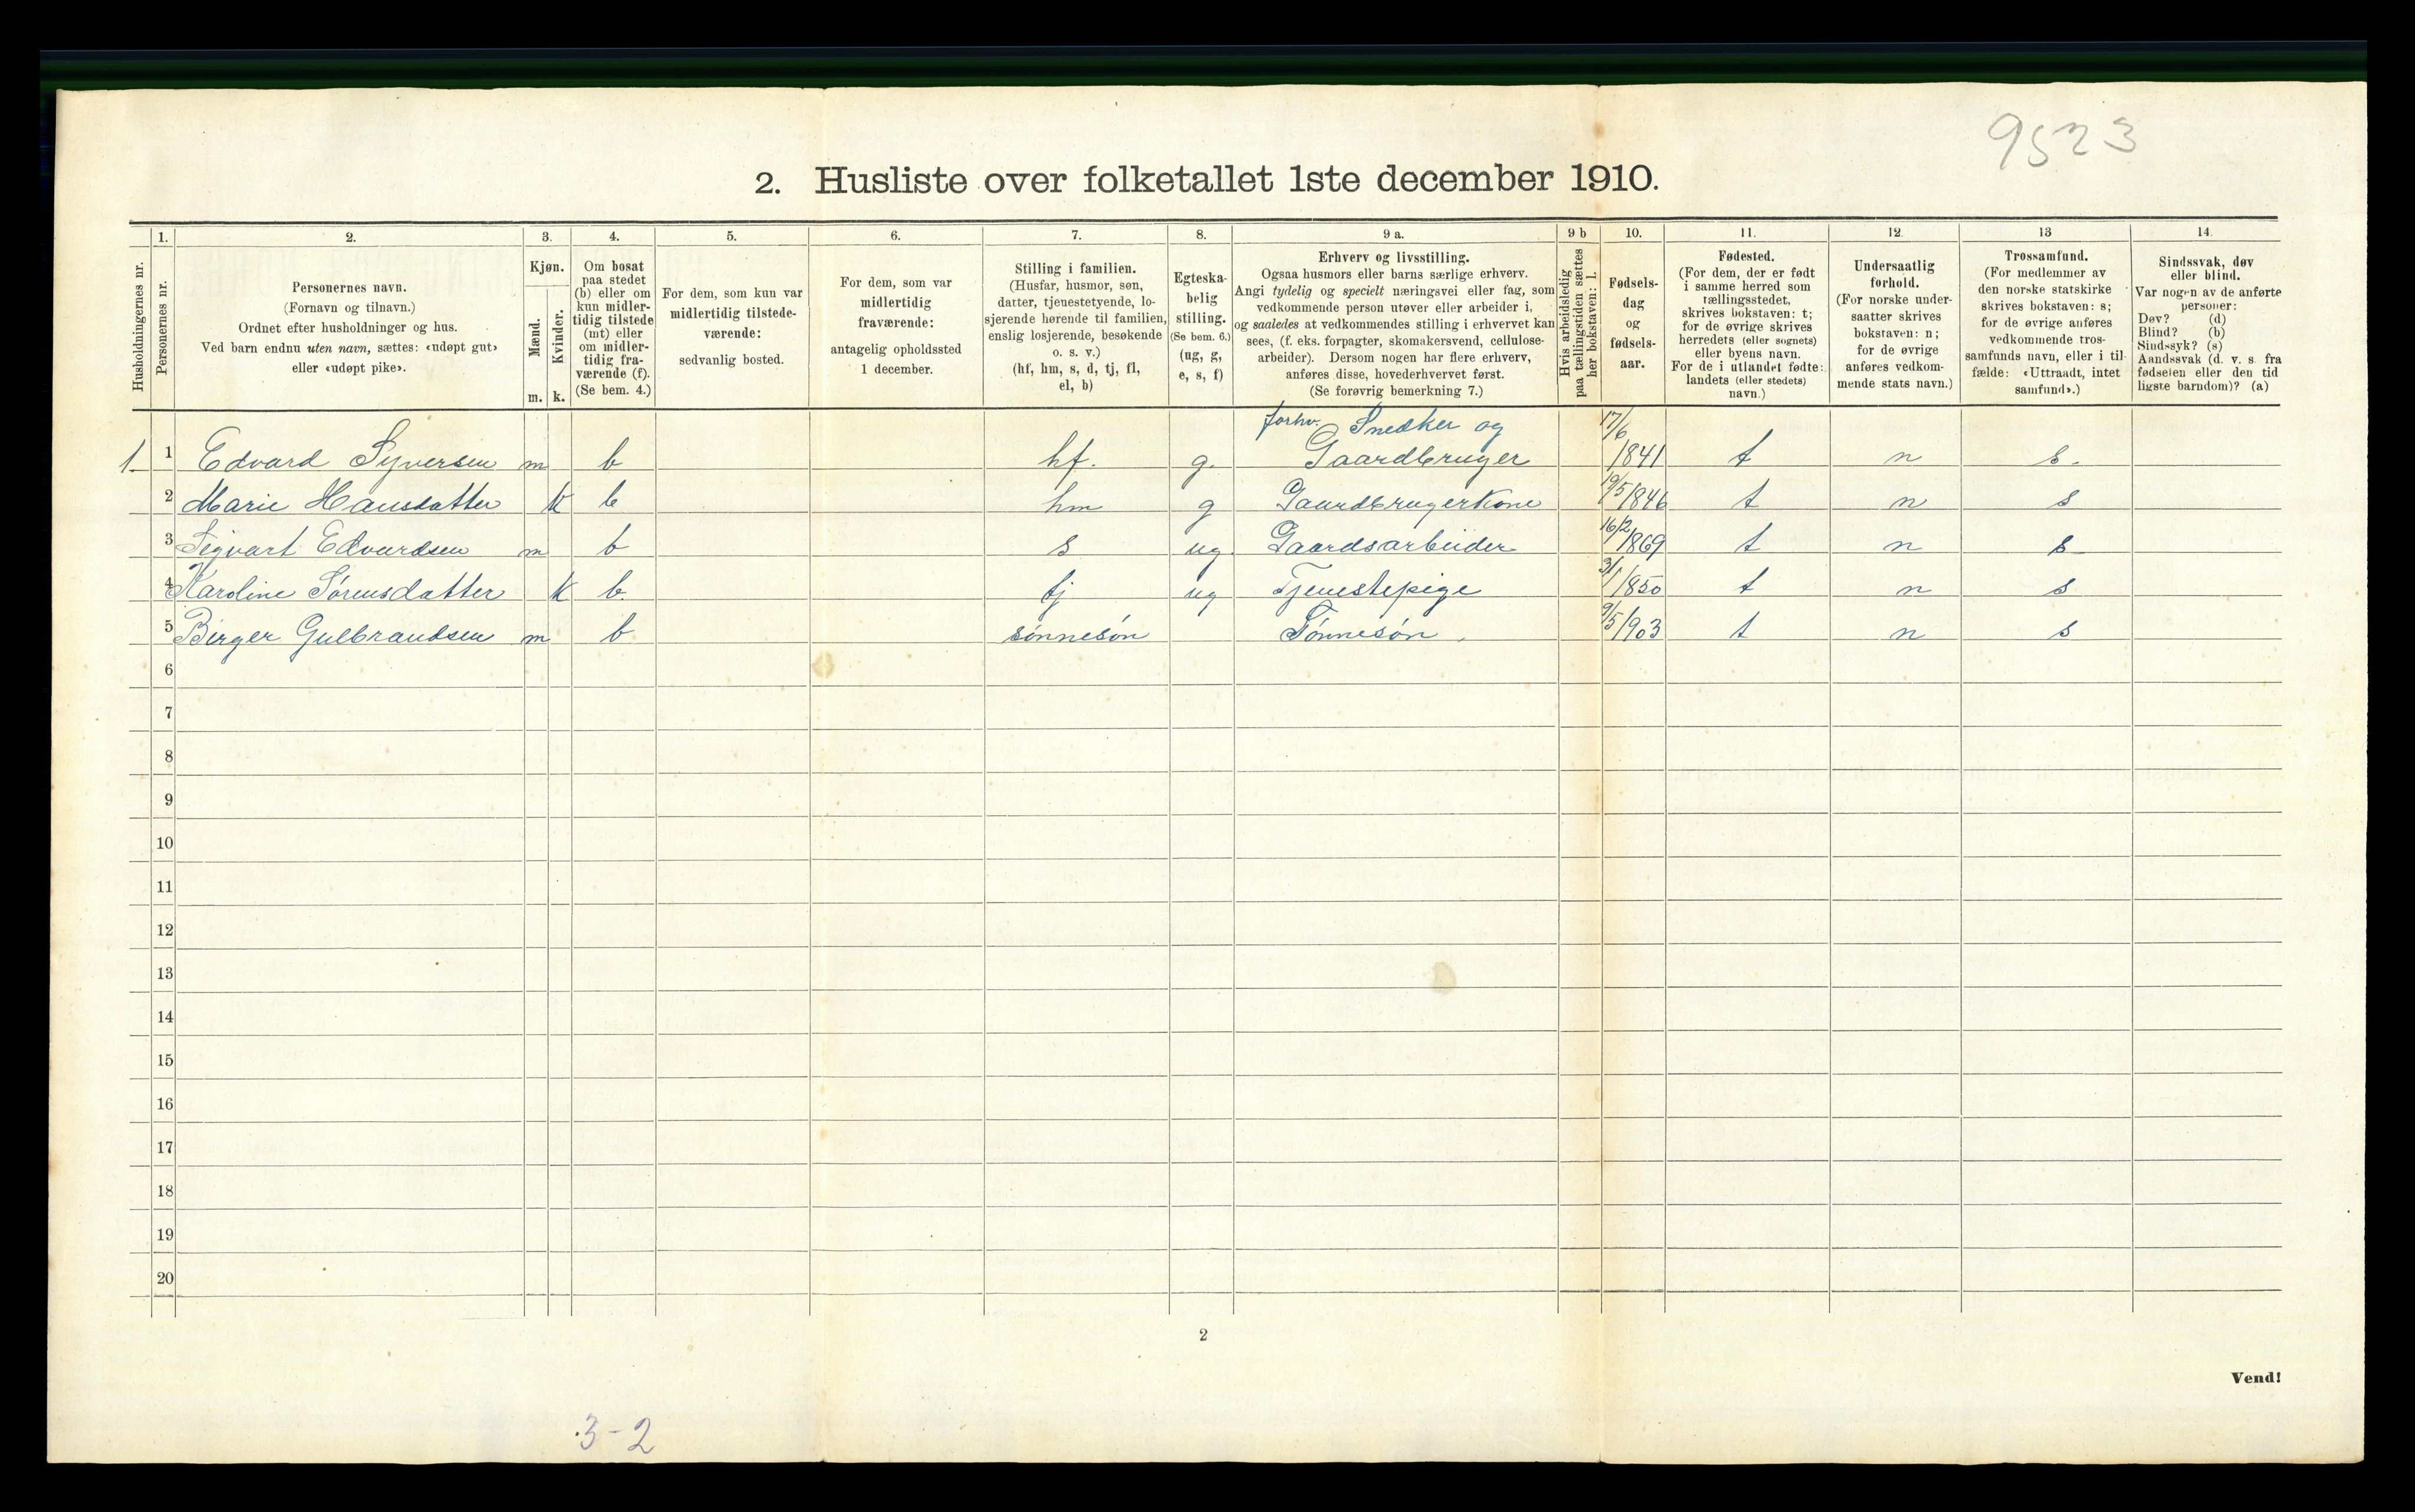 9523
2. Husliste over folketallet 1ste december 1910.
Husholdningernes nr.
1.
Personernes nr.
2.
Personernes navn.
(Fornavn og tilnavn.)
Ordnet efter husholdninger og hus.
Ved barn endnu uten navn, sættes: «udøpt gut»
eller «udøpt pike».
3.
Kjøn.
Mænd.
Kvinder.
m. k.
4.
Om bosat
paa stedet
(b) eller om
kun midler-
tidig tilstede
(mt) eller
om midler-
tidig fra-
værende (f).
(Se bem. 4.)
5.
For dem, som kun var
midlertidig tilstede-
værende:
sedvanlig bosted.
6.
For dem, som var
midlertidig
fraværende:
antagelig opholdssted
1 december.
7.
Stilling i familien.
(Husfar, husmor, søn,
datter, tjenestetyende, lo-
sjerende hørende til familien,
enslig losjerende, besøkende
o. s. v.)
(hf, hm, s, d, tj, fl,
el, b)
8.
Egteska-
belig
stilling.
(Se bem. 6.)
(ug, g,
e, s, f)
9 a.
Erhverv og livsstilling.
Ogsaa husmors eller barns særlige erhverv.
Angi tydelig og specielt næringsvei eller fag, som
vedkommende person utøver eller arbeider i,
og saaledes at vedkommendes stilling i erhvervet kan
sees, (f. eks. forpagter, skomakersvend, cellulose-
arbeider). Dersom nogen har flere erhverv,
anføres disse, hovederhvervet først.
(Se forøvrig bemerkning 7.)
9 b
Hvis arbeidsledig
paa tællingstiden sættes
her bokstaven: l.
10.
Fødsels-
dag
og
fødsels-
aar.
11.
Fødested.
(For dem, der er født
i samme herred som
tællingsstedet,
skrives bokstaven: t;
for de øvrige skrives
herredets (eller sognets)
eller byens navn.
For de i utlandet fødte:
landets (eller stedets)
navn.)
12.
Undersaatlig
forhold.
(For norske under-
saatter skrives
bokstaven: n;
for de øvrige
anføres vedkom-
mende stats navn.)
13
Trossamfund.
(For medlemmer av
den norske statskirke
skrives bokstaven: s;
for de øvrige anføres
vedkommende tros-
samfunds navn, eller i til-
fælde: «Uttraadt, intet
samfund».)
14.
Sindssvak, døv
eller blind.
Var nogen av de anførte
personer:
Døv? (d)
Blind? (b)
Sindssyk? (s)
Aandssvak (d. v. s. fra
fødselen eller den tid
ligste barndom)? (a)
forhv. Snedker og 17/6
1. 1 Edvard Syversen m b hf. g. Gaardbruger 1841 t n s.
2 Marie Hansdatter k b hm g Gaardbrugerkone 19/5 1846 t n s
3 Sigvart Edvardsen m b s ug Gaardsarbeider 16/2 1869 t n s
4 Karoline Sørensdatter k b tj ug Tjenestepige 3/1 1850 t n s
5 Birger Gulbrandsen m b sønnesøn Sønnesøn. 9/5 1903 t n s
6
7
8
9
10
11
12
13
14
15
16
17
18
19
20
2
Vend!
3-2